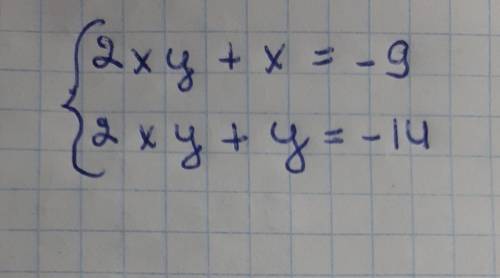 2xy + x = -9
2xy + y = -14